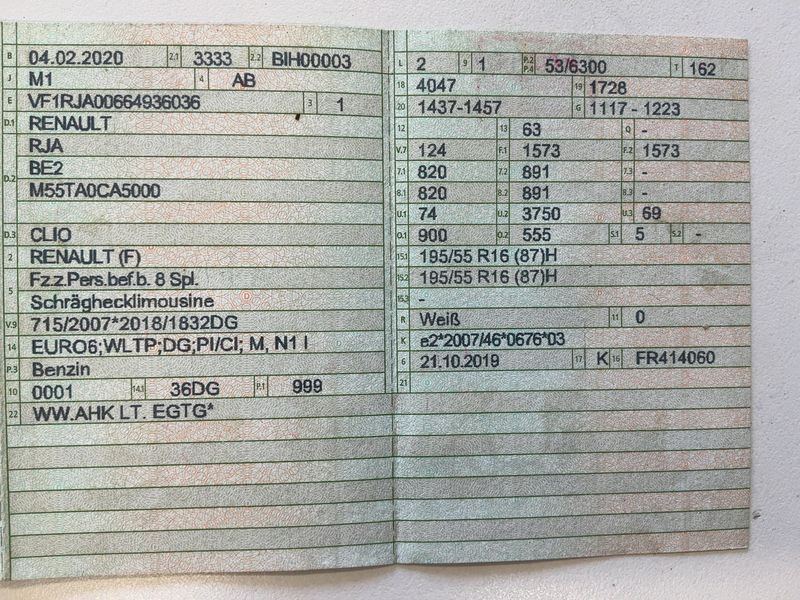 B 04.02.2020 2.1 3333 2.2 BIH00003
J M1 4 AB
E VF1RJA00664936036 3 1
D.1 RENAULT
RJA
D.2 BE2
M55TA0CA5000
D.3 CLIO
2 RENAULT (F)
5 Fz.z.Pers.bef.b. 8 Spl.
Schräghecklimousine
V.9 715/2007*2018/1832DG
14 EURO6;WLTP;DG;PI/CI; M, N1 I
P.3 Benzin
10 0001 14.1 36DG P.1 999
22 WW.AHK LT. EGTG*
L 2 9 1 P.2 P.4 53/6300 T 162
18 4047 19 1728
20 1437-1457 G 1117 - 1223
12 13 63 Q -
V.7 124 F.1 1573 F.2 1573
7.1 820 7.2 891 7.3 -
8.1 820 8.2 891 8.3 -
U.1 74 U.2 3750 U.3 69
O.1 900 O.2 555 S.1 5 S.2 -
15.1 195/55 R16 (87)H
15.2 195/55 R16 (87)H
15.3 -
R Weiß 11 0
K e2*2007/46*0676*03
6 21.10.2019 17 K 16 FR414060
21